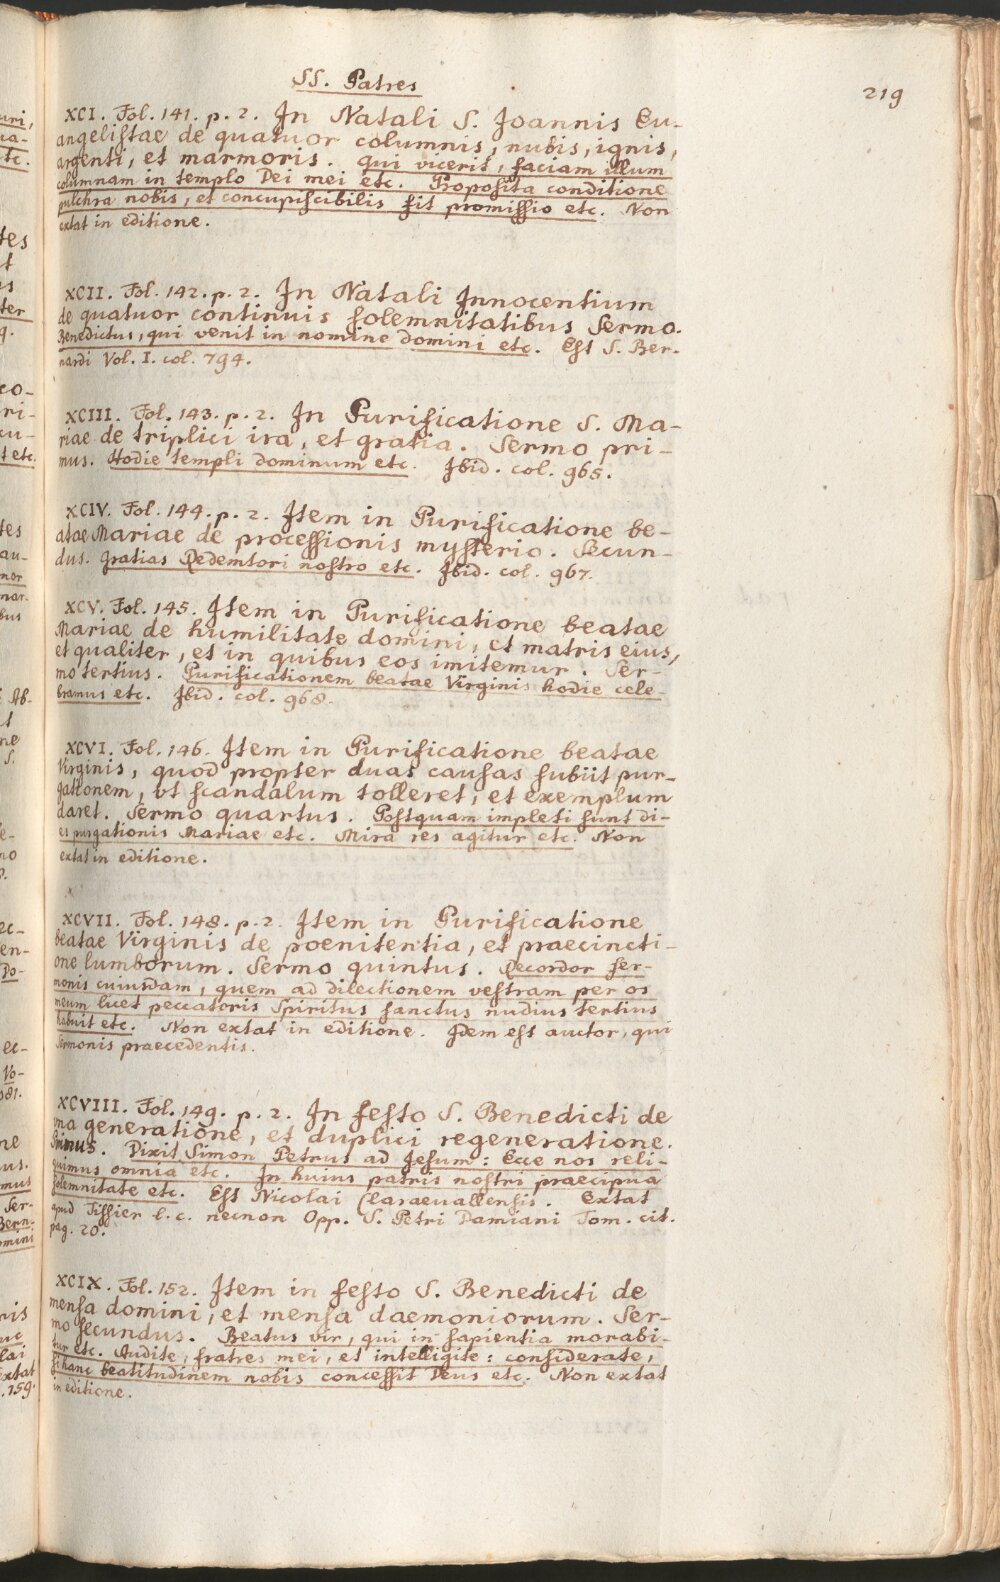 SS. Patres
219
XCI. Fol. 141. p. 2. In Natali S. Joannis Eu-
angelistae de quatuor columnis, nubis, ignis,
argenti, et marmoris. Qui vicerit, faciam illum
columnam in templo Dei mei etc. Proposita conditione
pulchra nobis, et concupiscibilis sit promissio etc. Non
extat in editione.
XCII. Fol. 142. p. 2. In Natali Innocentium
de quatuor continuis solemnitatibus Sermo.
Benedictus, qui venit in nomine domini etc. Est S. Ber-
nardi Vol. I. col. 794.
XCIII. Fol. 143. p. 2. In Purificatione S. Ma-
riae de triplici ira, et gratia. Sermo pri-
mus. Hodie templi dominum etc. Ibid. col. 965.
XCIV. Fol. 144. p. 2. Item in Purificatione be-
atae Mariae de processionis mysterio. Secun-
dus. Gratias Redemtori nostro etc. Ibid. col. 967.
XCV. Fol. 145. Item in Purificatione beatae
Mariae de humilitate domini, et matris eius,
et qualiter, et in quibus eos imitemur. Ser-
mo tertius. Purificationem beatae Virginis hodie cele-
bramus etc. Ibid. col. 968.
XCVI. Fol. 146. Item in Purificatione beatae
Virginis, quod propter duas causas subiit pur-
gationem, ut scandalum tolleret, et exemplum
daret. Sermo quartus. Postquam impleti sunt di-
es purgationis Mariae etc. Mira res agitur etc. Non
extat in editione.
XCVII. Fol. 148. p. 2. Item in Purificatione
beatae Virginis de poenitentia, et praecincti-
one lumborum. Sermo quintus. Recordor ser-
monis cuiusdam, quem ad dilectionem vestram per os
meum licet peccatoris Spiritus sanctus nudius tertius
habuit etc. Non extat in editione. Idem est auctor, qui
sermonis praecedentis.
XCVIII. Fol. 149. p. 2. In festo S. Benedicti de
una generatione, et duplici regeneratione.
Primus. Dixit Simon Petrus ad Jesum: Ecce nos reli-
quimus omnia etc. In huius patris nostri praecipua
solemnitate etc. Est Nicolai Claraevallensis. Extat
apud Tissier l. c. necnon Opp. S. Petri Damiani Tom. cit.
pag. 20.
XCIX. Fol. 152. Item in festo S. Benedicti de
mensa domini, et mensa daemoniorum. Ser-
mo secundus. Beatus vir, qui in sapientia morabi-
tur etc. Audite, fratres mei, et intelligite: considerate,
si hanc beatitudinem nobis concessit Deus etc. Non extat
in editione.